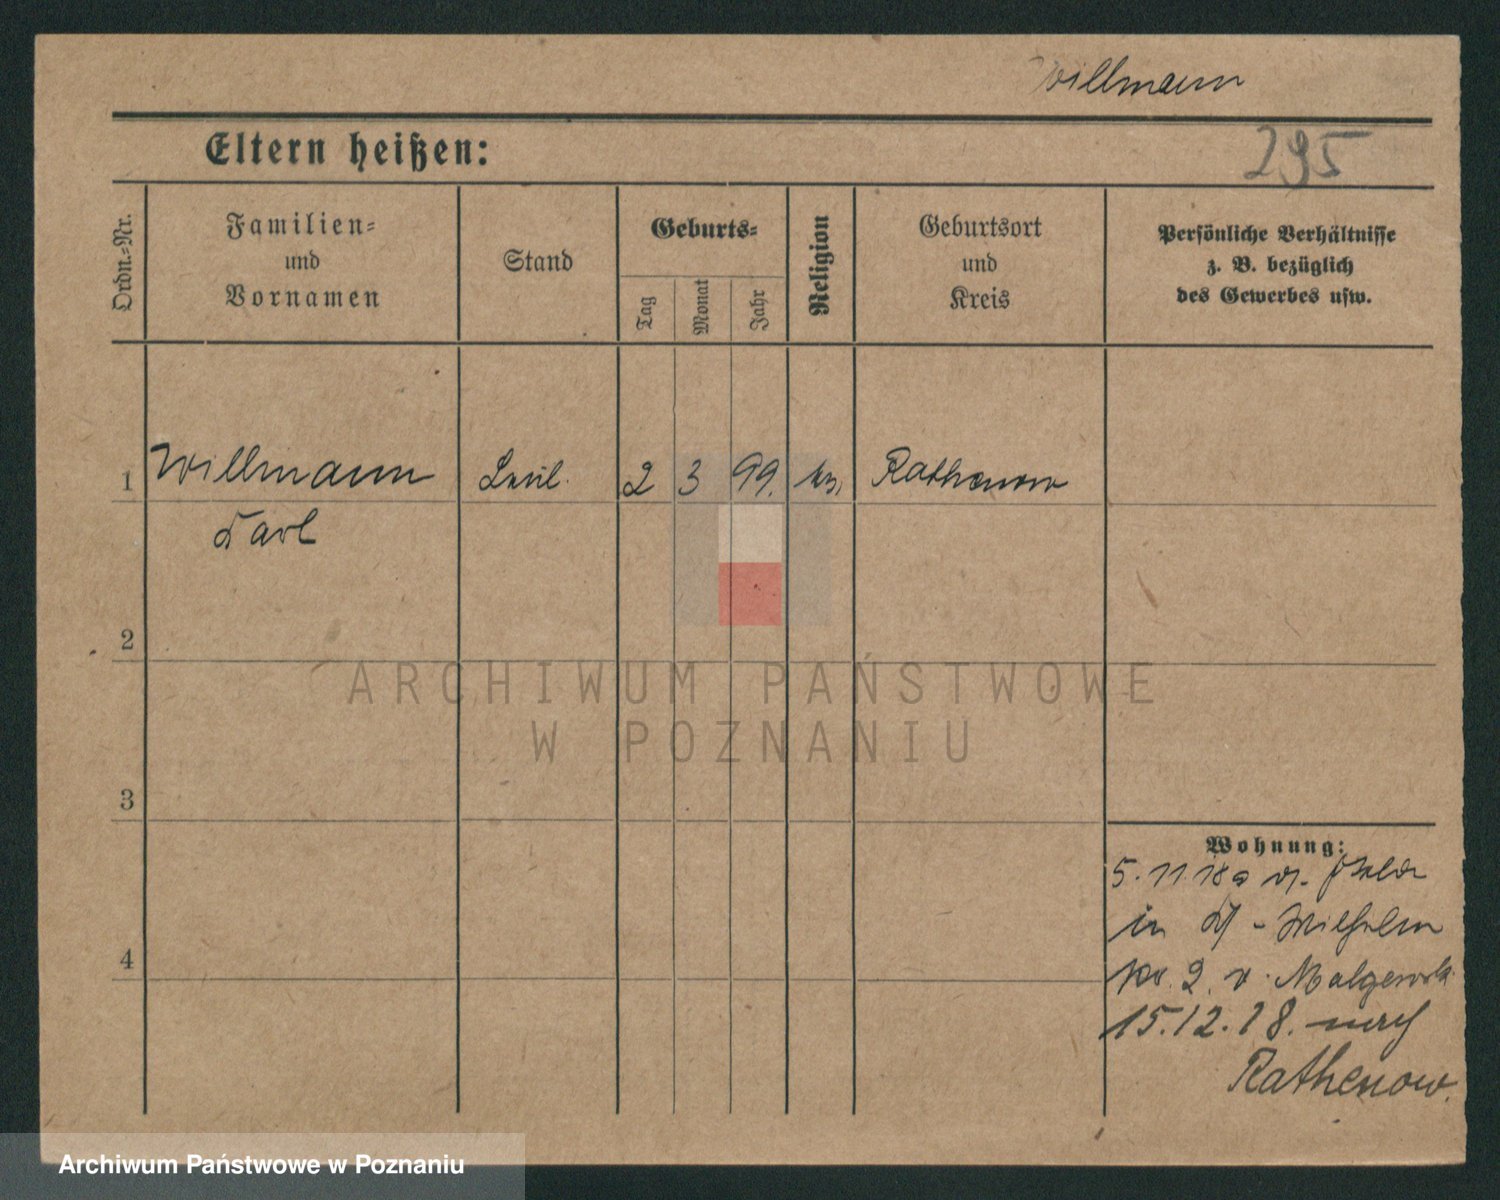 Willmann
295
Eltern heißen:
Ordn.-Nr.
Familien- und Vornamen
Stand
Geburts-
Tag
Monat
Jahr
Religion
Geburtsort und Kreis
Persönliche Verhältnisse
z. B. bezüglich
des Gewerbes usw.
1 Willmann 2 3 99. Rathenow
Karl
2
ARCHIWUM PAŃSTWOWE
W POZNANIU
3
Wohnung:
5.11.18
in Wilhelm
2. v.
4
15.12.18. nach
Rathenow.
Archiwum Państwowe w Poznaniu